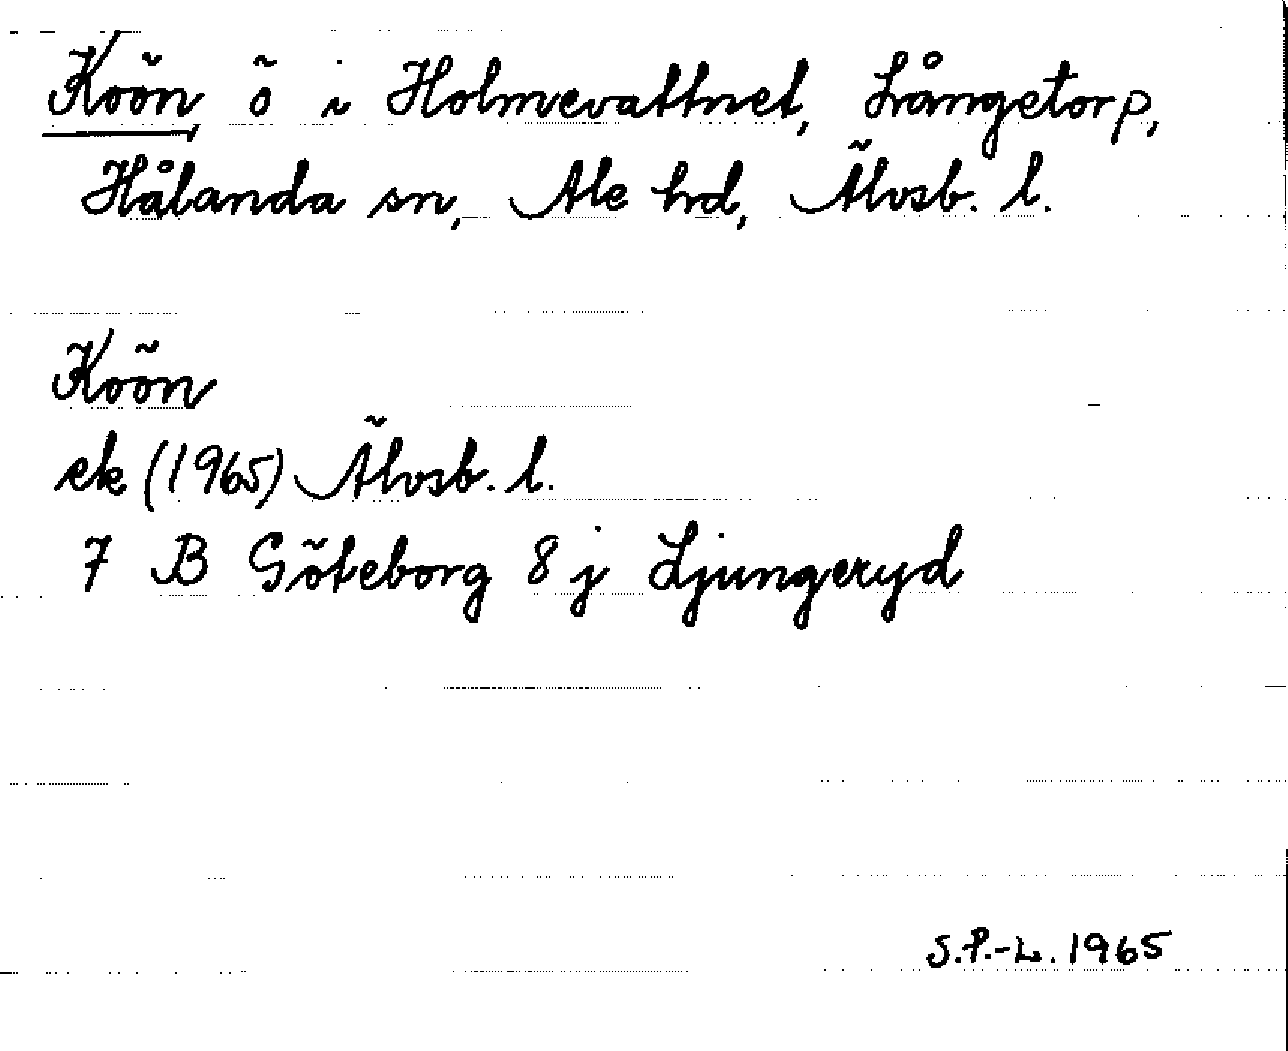 Koön, ö i Holmevattnet, Långetorp,
Hålanda sn, Ale hd, Älvsb. l.
Koön
ek (1965) Älvsb. l.
7 B Göteborg 8 j Ljungeryd
S.P.-L. 1965